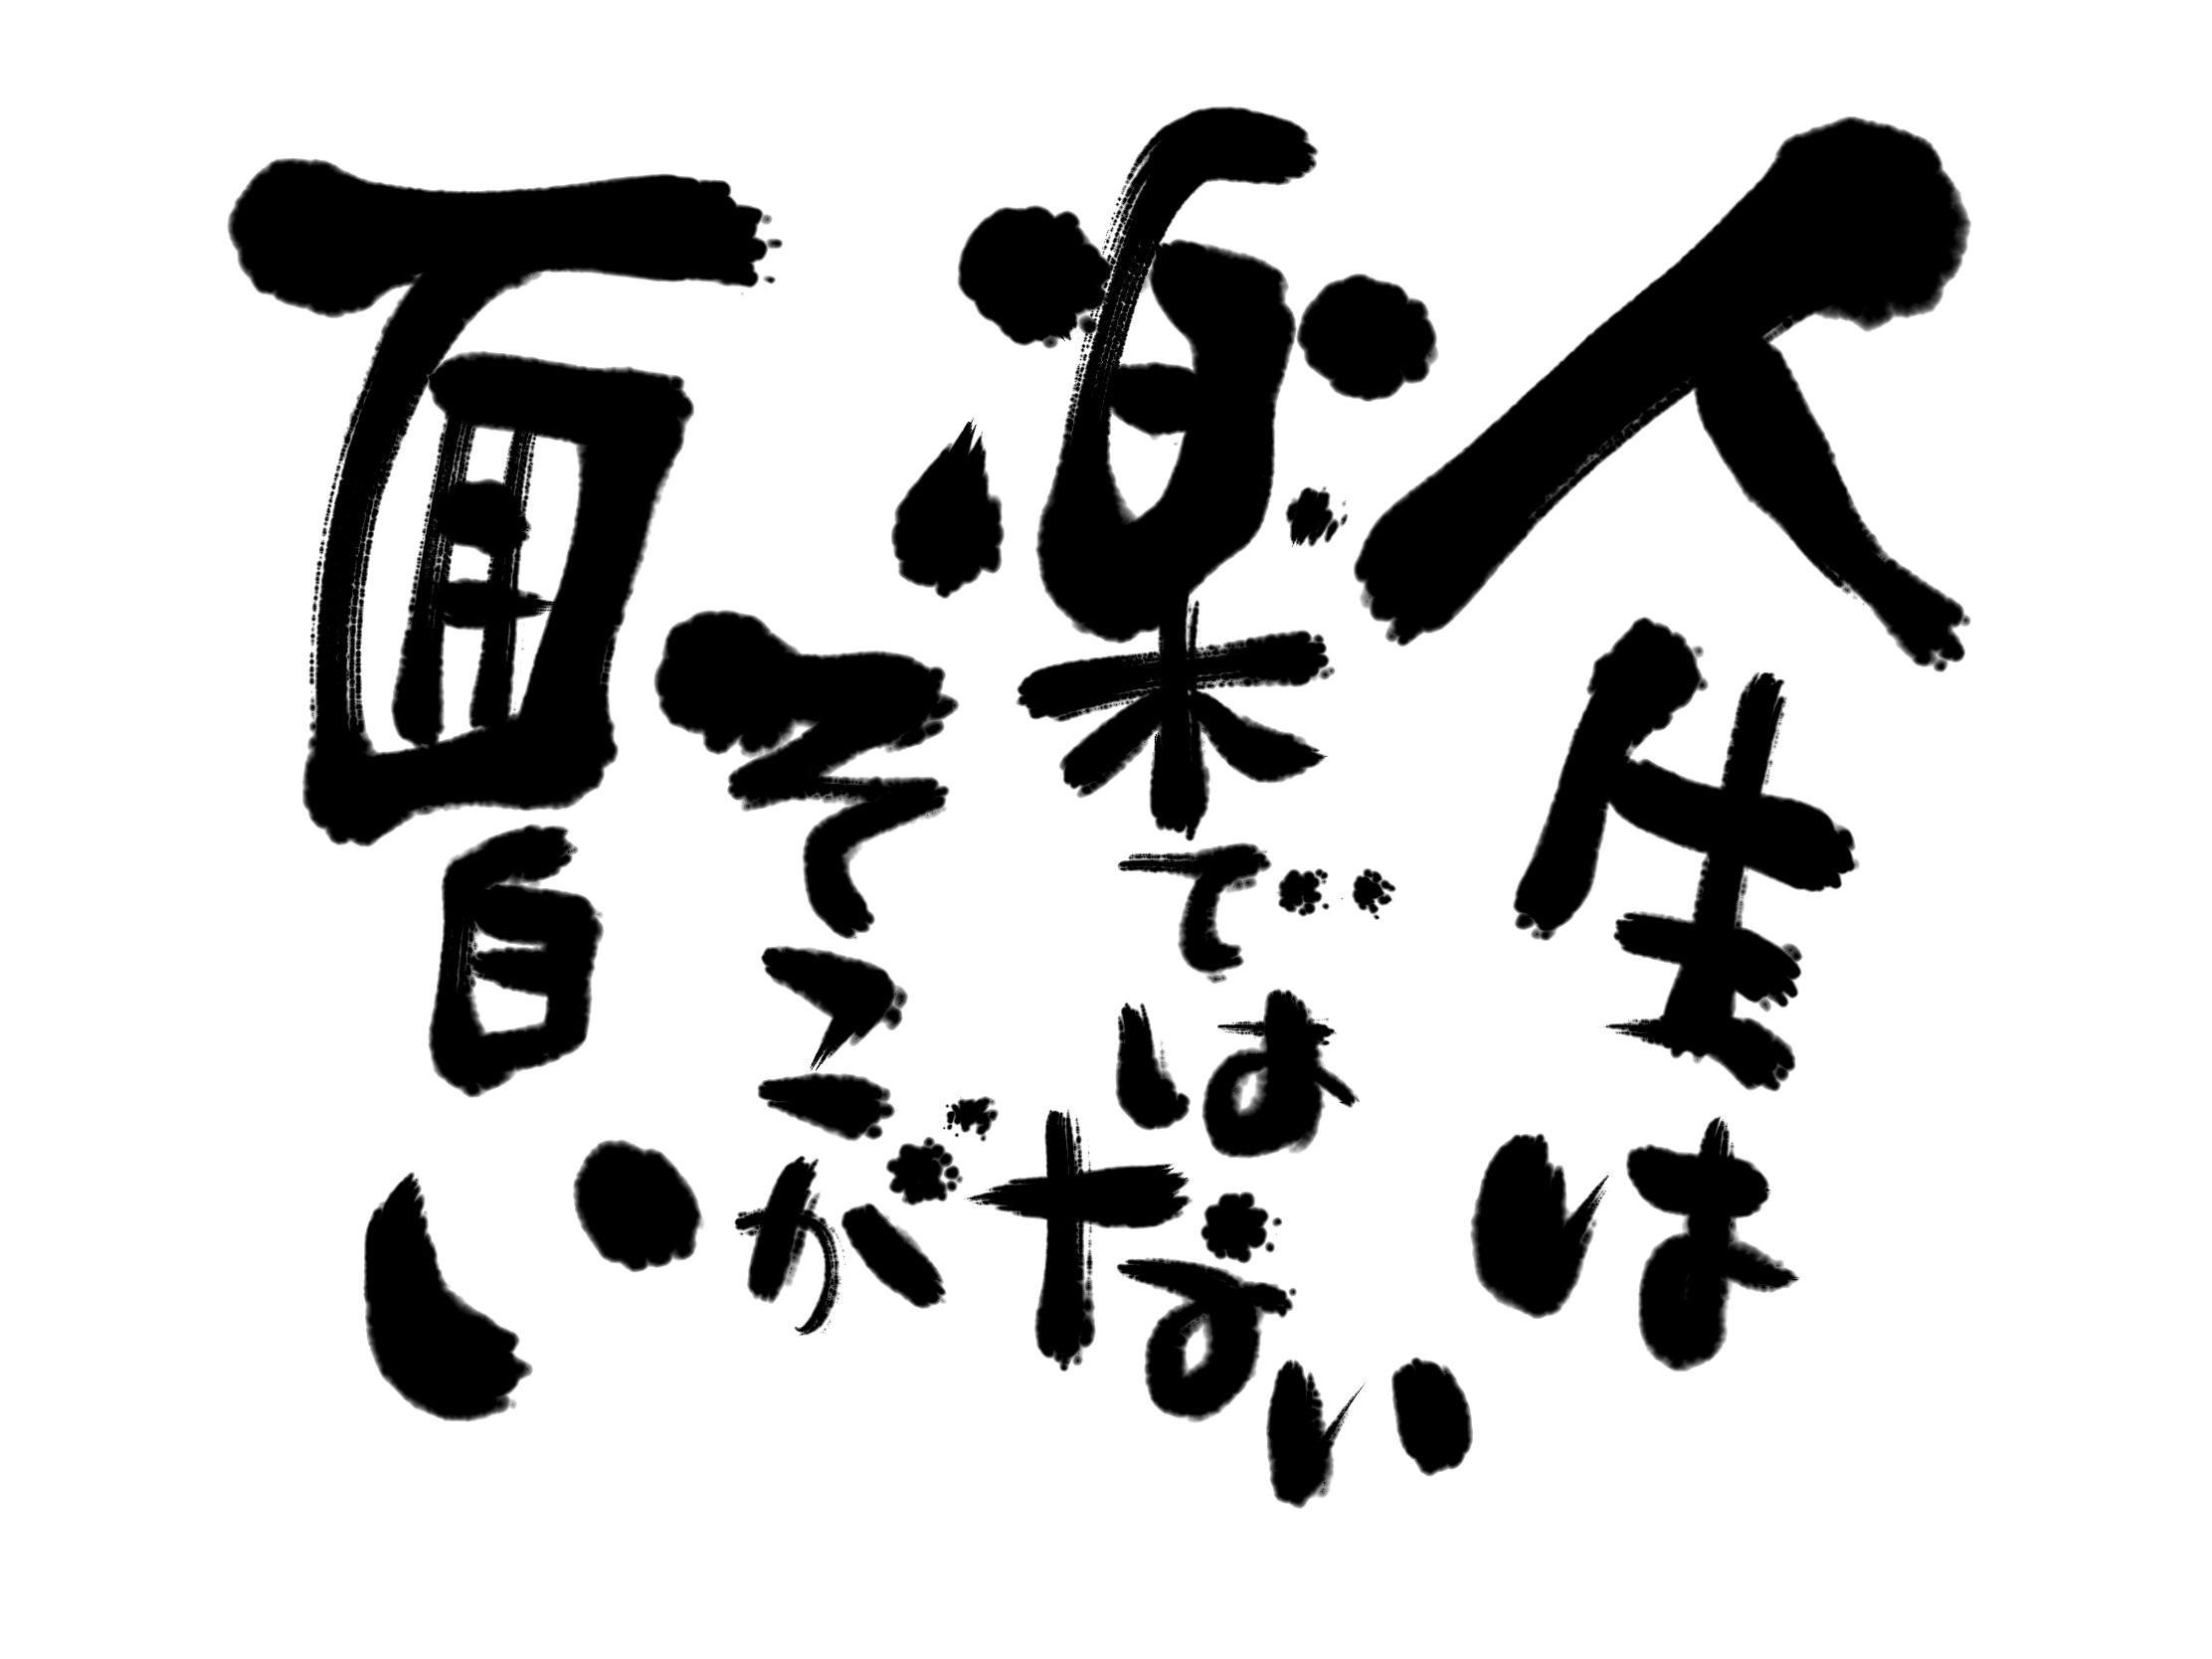 人生は
楽ではない
そこが
面白い